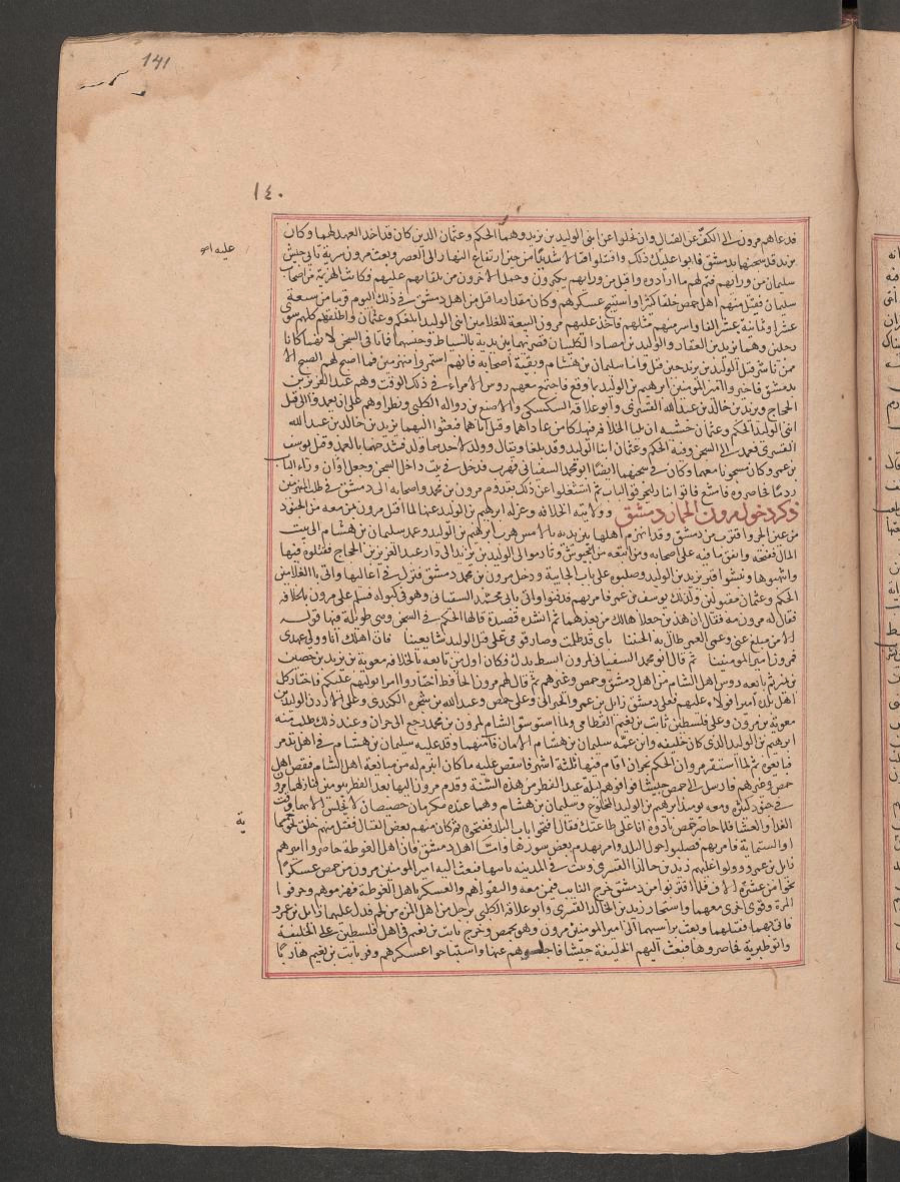 141
١٤٠
فدعاهم مرون الى الكف عن القتال وان يخلوا عن ابنى الوليد بن يزيد وهما الحكم وعثمان الذين كان قد اخذ العهد لهما وكان
عليه اهو
يزيد قد سجنهما بدمشق فابوا عليك ذلك واقتتلوا قتالا شديدًا من حين ارتفاع النهار الى العصر وبعث مرون سرية تاتى جيش
سليمان من ورائهم فتم لهم ما ارادوه واقبل من ورائهم يكبرون وحمل الاخرون من تلقائهم عليهم فكانت الهزيمة فى اصحاب
سليمان فقتل منهم اهل حمص خلقا كثيرا واستبيح عسكرهم وكان مقدار ما قتل من اهل دمشق فى ذلك اليوم قريبا من سبعة
عشر او ثمانية عشر الفا واسر منهم مثلهم فاخذ عليهم مرون البيعة للغلامين ابنى الوليد الحكم وعثمان واطلقهم كلهم سوى
رجلين وهما يزيد بن العقار والوليد بن مصاد الكلبيان فضربهما بين يديه بالسياط وحبسهما فماتا فى السجن لانهما كانا
ممن باشر قتل الوليد بن يزيد حين قتل واما سليمان بن هشام وبقية اصحابه فانهم استمروا منهزمين فما اصبح لهم الصبح الا
بدمشق فاخبروا امير المومنين ابرهيم بن الوليد بما وقع فاجتمع معهم روس الامراء فى ذلك الوقت وهم عبد العزيز بن
الحجاج ويزيد بن خالد بن عبد الله القسرى وابو علاقه السكسكى والاصبغ بن دواله الكلبى ونظراوهم على ان يعمدوا الى قتل
ابنى الوليد الحكم وعثمان خشية ان يليا الخلافة فيهلكا من عاداهما وقتل اباهما فبعثوا اليهما يزيد بن خالد بن عبد الله
القسرى فعمد الى السجن وفيه الحكم وعثمان ابنا الوليد وقد بلغا ويقال وولد لاحدهما ولد فشدخهما بالعمد وقتل يوسف
بن عمر وكان مسجونا معهما وكان فى سجنهما ايضا ابو محمد السفيانى فهرب فدخل فى بيت داخل السجن وجعل وراء الباب
ردمًا فحاصروه فامتنع فاتوا بنار ليحرقوا الباب ثم اشتغلوا عن ذلك بقدوم مرون بن محمد واصحابه الى دمشق فى طلب المنهزمين
ذكر دخول مرون الحمار دمشق وولايته الخلافه وعزله ابرهيم بن الوليد عنها لما اقبل مرون بمن معه من الجنود
من عين الجر واقترب من دمشق وقد انهزم اهلها بين يديه بالامس هرب ابرهيم بن الوليد وعمد سليمان بن هشام الى بيت
المال ففتحه وانفق ما فيه على اصحابه ومن اتبعه من الجيوش وثار موالى الوليد بن يزيد الى دار عبد العزيز بن الحجاج فقتلوه فيها
وانتهبوها ونبشوا قبر يزيد بن الوليد وصلبوه على باب الجابية ودخل مرون بن محمد دمشق فنزل فى اعاليها واتى بالغلامين
الحكم وعثمان مقتولين وكذلك يوسف بن عمر فامر بهم فدفنوا واتى بابى محمد السفيانى وهو فى كبوله فسلم على مرون بالخلافه
فقال له مرون مه فقال ان هذين جعلاها لك من بعدهما ثم انشد قصيدة قالها الحكم فى السجن وهى طويلة فيها قوله
الا من مبلغ عنى وعمى الغمر طال به الحنينا باى قد ظلمت وصار قومى على قتل الوليد متابعينا فان اهلك انا وولى عهدى
فمرون امير المومنينا ثم قال ابو محمد السفيانى لمرون ابسط يدك فكان اول من بايعه بالخلافه معوية بن يزيد بن حصين
بن نمير ثم بايعه روس اهل الشام من اهل دمشق وحمص وغيرهم ثم قال لهم مرون الحمار اختاروا امرا نوليهم عليكم فاختار كل
اهل بلد اميرا فولاه عليهم فعلى دمشق زامل بن عمرو الحبرانى وعلى حمص وعبد الله بن شجره الكندى وعلى الاردن الوليد بن
معوية بن مرون وعلى فلسطين ثابت بن نعيم الجذامى ولما استوسق الشام لمرون بن محمد رجع الى حران وعند ذلك طلب منه
ابرهيم بن الوليد الذى كان خليفه وابن عمه سليمان بن هشام الامان فامنهما وقدم عليه سليمان بن هشام فى اهل تدمر
فبايعوه ثم لما استقر مروان الحكم بحران اقام فيها ثلثة اشهر فانتقض عليه ما كان ابرم له من مبايعة اهل الشام فنقض اهل
حمص وغيرهم فارسل الى حمص جيشا فوافوهم ليلة عيد الفطر من هذه السنة وقدم مرون اليها بعد الفطر بيومين فنازلها مرون
فى جنود كثيره ومعه يومئذ ابرهيم بن الوليد المخلوع وسليمان بن هشام وهما عنده مكرمان خصيصان لا يجلس الا بهما وقت
الغدا والعشا فلما حاصر حمص نادوه انا على طاعتك فقال افتحوا باب البلد ففتحوه ثم كان منهم بعض القتال فقتل منهم خلق نحو خمسما
ية
او الستماية فامر بهم فصلبوا حول البلد وامر بهدم بعض سورها واما اهل دمشق فان اهل الغوطة حاصروا اميرهم
زامل بن عمرو وولوا عليهم يزيد بن خالد القسرى وثبت فى المدينه نايبها فبعث اليه امير المومنين مرون من حمص عسكرًا
نحوا من عشرة الاف فلما اقتربوا من دمشق خرج النايب فيمن معه والتقوا هم والعسكر باهل الغوطة فهزموهم وحرقوا
المزة وقرى اخرى معهما واستجار يزيد بن الخالد القسرى وابو علاقة الكلبى برجل من اهل المزه من لخم فدل عليهما زامل بن عمرو
فاتى بهما فقتلهما وبعث براسيهما الى امير المومنين مرون وهو بحمص وخرج ثابت بن نعيم فى اهل فلسطين على الخليفة
واتوا طبرية فحاصروها فبعث اليهم الخليفة جيشا فاجلوهم عنها واستباحوا عسكرهم وفر ثابت بن نعيم هاربًا